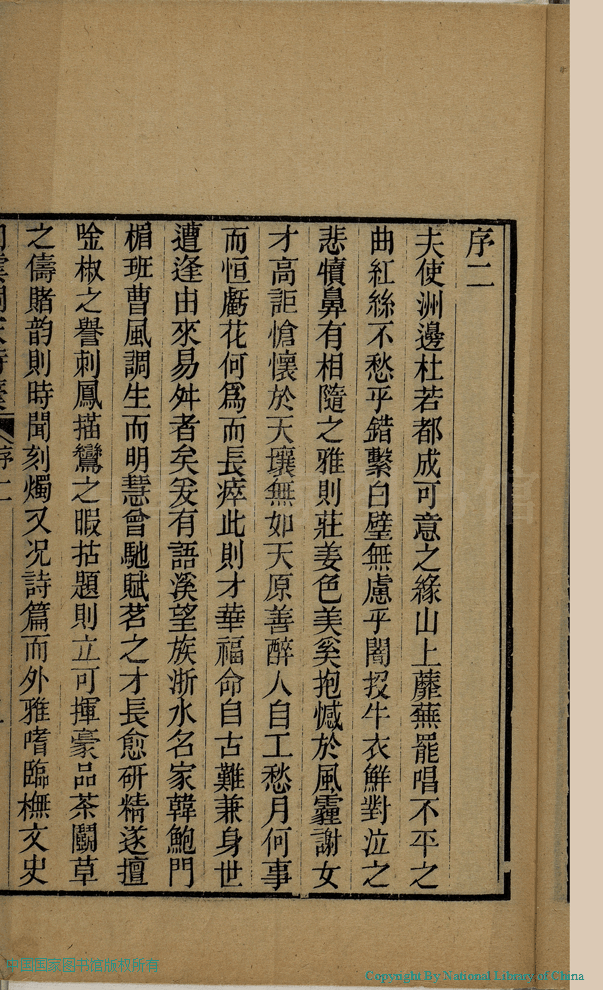 序二
夫使洲邊杜若都成可意之緣山上蘼蕪罷唱不平之
曲紅絲不愁乎錯繫白璧無慮乎闇投牛衣鮮對泣之
悲犢鼻有相隨之雅則莊姜色美奚抱憾於風霾謝女
才高詎愴懷於天壤無如天原善醉人自工愁月何事
而恒虧花何爲而長瘁此則才華福命自古難兼身世
遭逢由來易舛者矣爰有語溪望族浙水名家韓鮑門
楣班曹風調生而明慧曾馳賦茗之才長愈研精遂擅
唫椒之譽刺鳳描鸞之暇拈題則立可揮豪品茶鬭草
之儔賭韵則時聞刻燭又况詩篇而外雅嗜臨橅文史
序二
中国国家图书馆版权所有
Copyright By National Library of China